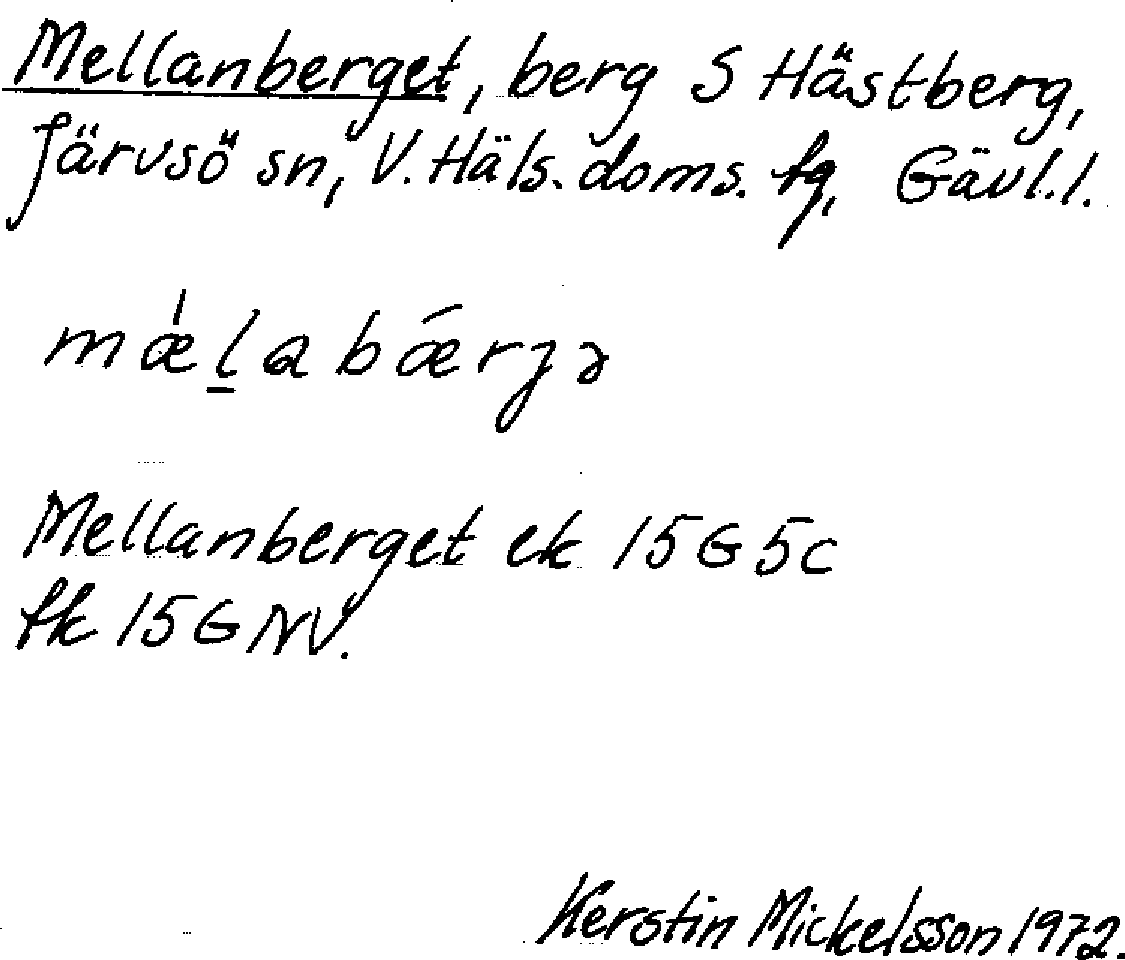 Mellanberget, berg S Hästberg,
Järvsö sn, V. Häls. doms. fg, Gävl. l.
mǽl̲abǽrjə
Mellanberget ek 15G5c
fk 15GNV.
Kerstin Mickelsson 1972.